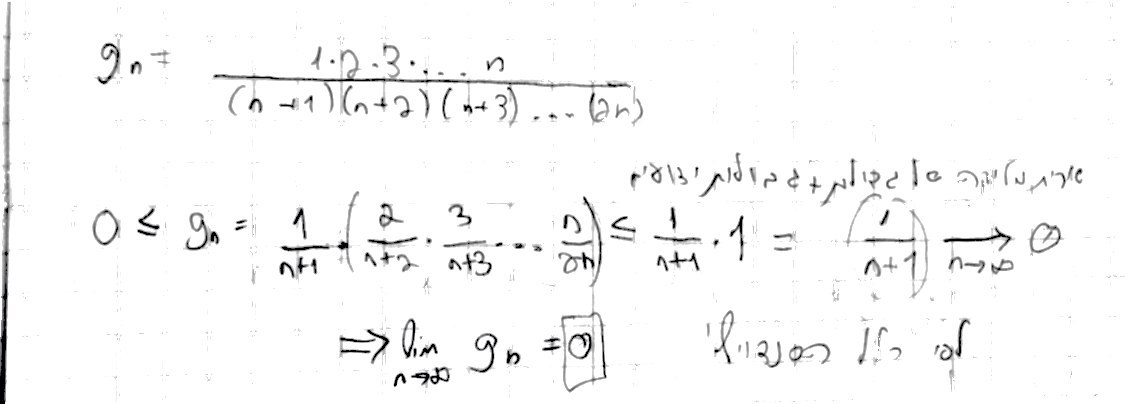 gₙ = (1·2·3·...n) / ((n+1)(n+2)(n+3)...(2n))
אריתמטיקה של גבולות + גבולות ידועים
0 ≤ gₙ = 1/(n+1) · (2/(n+2) · 3/(n+3) · ... n/2n) ≤ 1/(n+1) · 1 = (1/(n+1)) ⟶ₙ→∞ 0
⟹ lim ₙ→∞ gₙ = 0 לפי כלל הסנדוויץ'